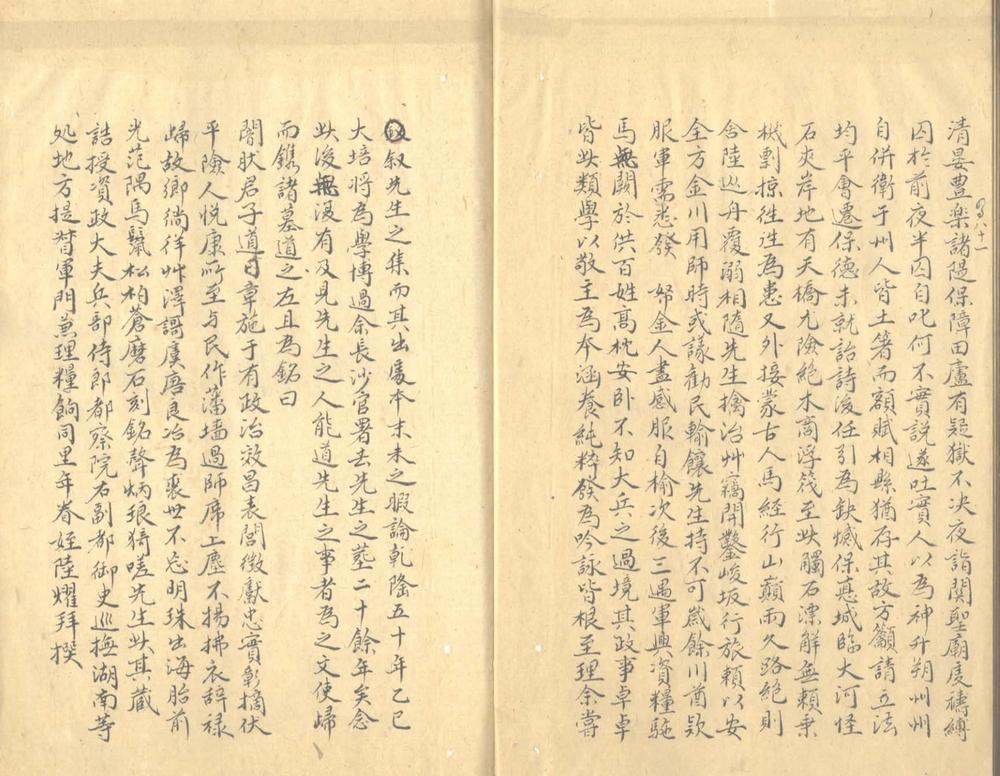 清晏豊楽諸隄保障田廬有疑獄不决夜詣関聖廟虔禱縛
囚於前夜半囚自叱何不實說遂吐實人以為神升朔州州
自併衛于州人皆土著而額賦相縣猶存其故方籲請立法
均平會遷保德未就詒詩後任引為缺憾保悳城臨大河怪
石夾岸地有天橋尤險絶木商浮筏至此觸石漂解無頼乗
機剽掠徃迬為患又外接蒙古人馬經行山巔雨久路絶則
舍陸廵舟覆溺相隨先生擒治艸竊開鑿峻坂行旅頼以安
全方金川用師時或議勸民輸饟先生持不可歲餘川酋欵
服軍需悉發帑金人盡感服自榆次後三遇軍興資糧駞
馬無闕於供百姓髙枕安卧不知大兵之過境其政事卓卓
皆此類學以敬主為本涵養純粹發為吟詠皆根至理余嘗
叙先生之集而其出處本末未之暇論乾隆五十年乙巳
大培将為學博過余長沙官署去先生之塟二十餘年矣念
此後無復有及見先生之人能道先生之事者為之文使歸
而鐫諸墓道之左且為銘曰
闇肰君子道日章施于有政治效昌表閭徴獻忠實彰摘伏
平險人悦康所至与民作藩墙過師席上塵不揚拂衣辞禄
歸故鄉徜徉艸澤謌虞唐良冶為裘世不忘明珠出海胎前
光范隅馬鬣松柏蒼磨石刻銘聲炳琅猗嗟先生此其蔵
誥授資政大夫兵部侍郎都察院右副都御史廵撫湖南等
処地方提督軍門兼理糧餉同里年眷姪陸燿拜撰